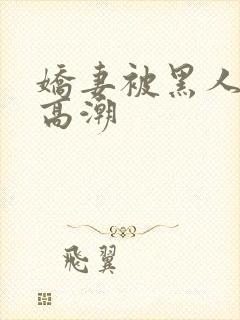 嬌妻被黑人
高潮
飛翼